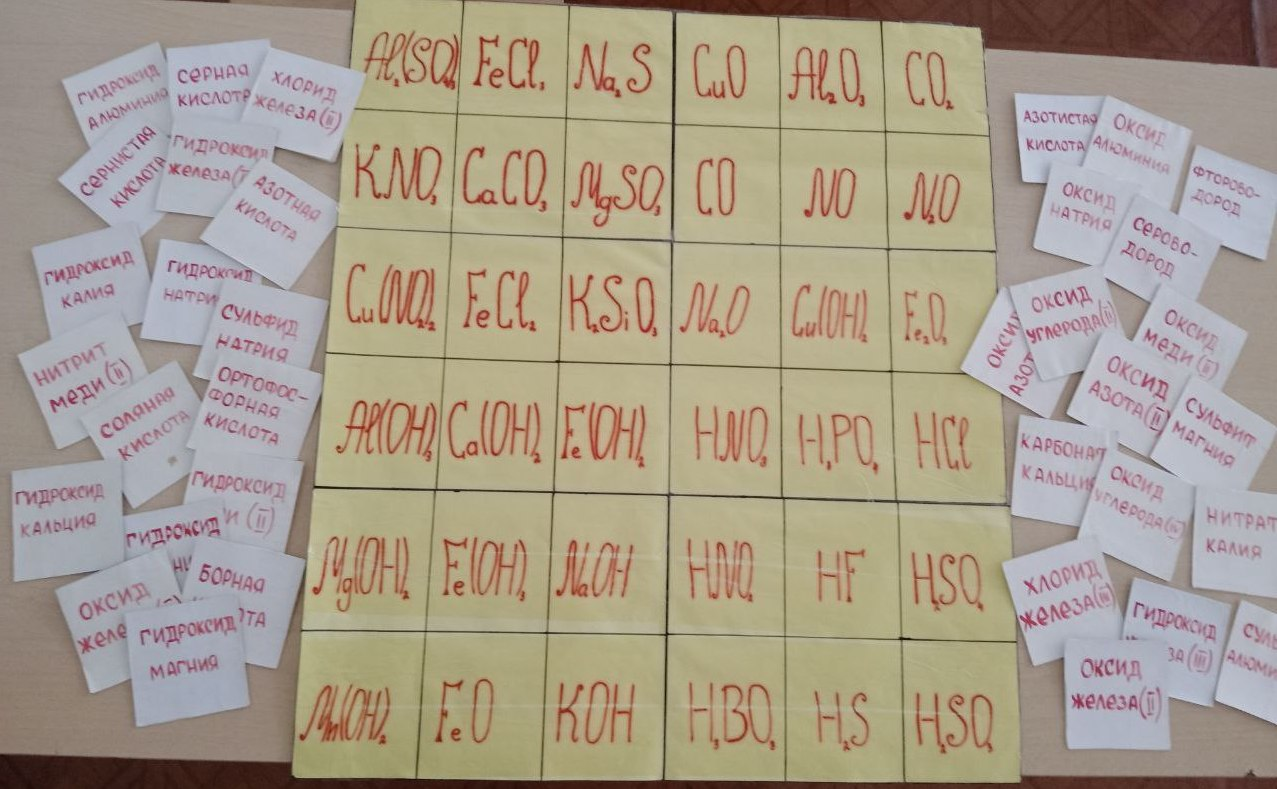 ГИДРОКСИД
АЛЮМИНИЯ
СЕРНАЯ
КИСЛОТА
ХЛОРИД
ЖЕЛЕЗА (II)
СЕРНИСТАЯ
КИСЛОТА
ГИДРОКСИД
ЖЕЛЕЗА
АЗОТНАЯ
КИСЛОТА
ГИДРОКСИД
КАЛИЯ
ГИДРОКСИД
НАТРИЯ
СУЛЬФИД
НАТРИЯ
НИТРИТ
МЕДИ (II)
СОЛЯНАЯ
КИСЛОТА
ОРТОФОС-
ФОРНАЯ
КИСЛОТА
ГИДРОКСИД
КАЛЬЦИЯ
ГИДРОКСИД
(II)
ГИДРОКСИД
БОРНАЯ
ОКСИД
ГИДРОКСИД
МАГНИЯ
Al₂(SO₄)₃ FeCl₃ Na₂S CuO Al₂O₃ CO₂
KNO₃ CaCO₃ MgSO₃ CO NO N₂O
Cu(NO₂)₂ FeCl₂ K₂SiO₃ Na₂O Cu(OH)₂ Fe₂O₃
Al(OH)₃ Ca(OH)₂ Fe(OH)₂ HNO₃ H₃PO₄ HCl
Mg(OH)₂ Fe(OH)₃ NaOH HNO₂ HF H₂SO₄
Mn(OH)₂ FeO KOH H₃BO₃ H₂S H₂SO₃
АЗОТИСТАЯ
КИСЛОТА
ОКСИД
АЛЮМИНИЯ
ФТОРОВО-
ДОРОД
ОКСИД
НАТРИЯ
СЕРОВО-
ДОРОД
ОКСИД
АЗОТ
ОКСИД
УГЛЕРОДА (II)
ОКСИД
МЕДИ (II)
ОКСИД
АЗОТА (II)
СУЛЬФИТ
МАГНИЯ
КАРБОНАТ
КАЛЬЦИЯ
ОКСИД
УГЛЕРОДА (IV)
НИТРАТ
КАЛИЯ
ХЛОРИД
ЖЕЛЕЗА (III)
ГИДРОКСИД
ЗА (III)
СУЛЬ
АЛЮМИ
ОКСИД
ЖЕЛЕЗА (II)